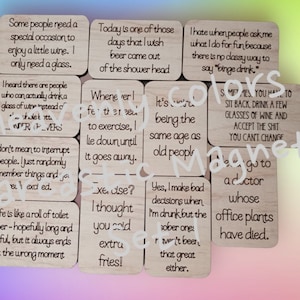 Some people need a
special occasion to
enjoy a little wine. I
only need a glass.
Today is one of those
days that I wish
beer came out
of the shower head
I hate when people ask me
what I do for fun, because
there is no classy way
to say "binge drink."
I heard there are people
who can actually drink a
glass of wine instead of
Whenever I
feel the need
to exercise, I
lie down until
it goes away.
It's weird
being the
same age as
old people
SIT BACK, DRINK A FEW
GLASSES OF WINE AND
ACCEPT THE SHIT
YOU CAN'T CHANGE
don't mean to interrupt
people. I just randomly
remember things and
get excited.
Exercise?
I thought
you said
extra
fries!
Yes, I make bad
decisions when
I'm drunk, but the
sober ones
haven't been
that great
either.
go to
a doctor
whose
office plants
have died.
life is like a roll of toilet
paper - hopefully long and
useful, but it always ends
at the wrong moment